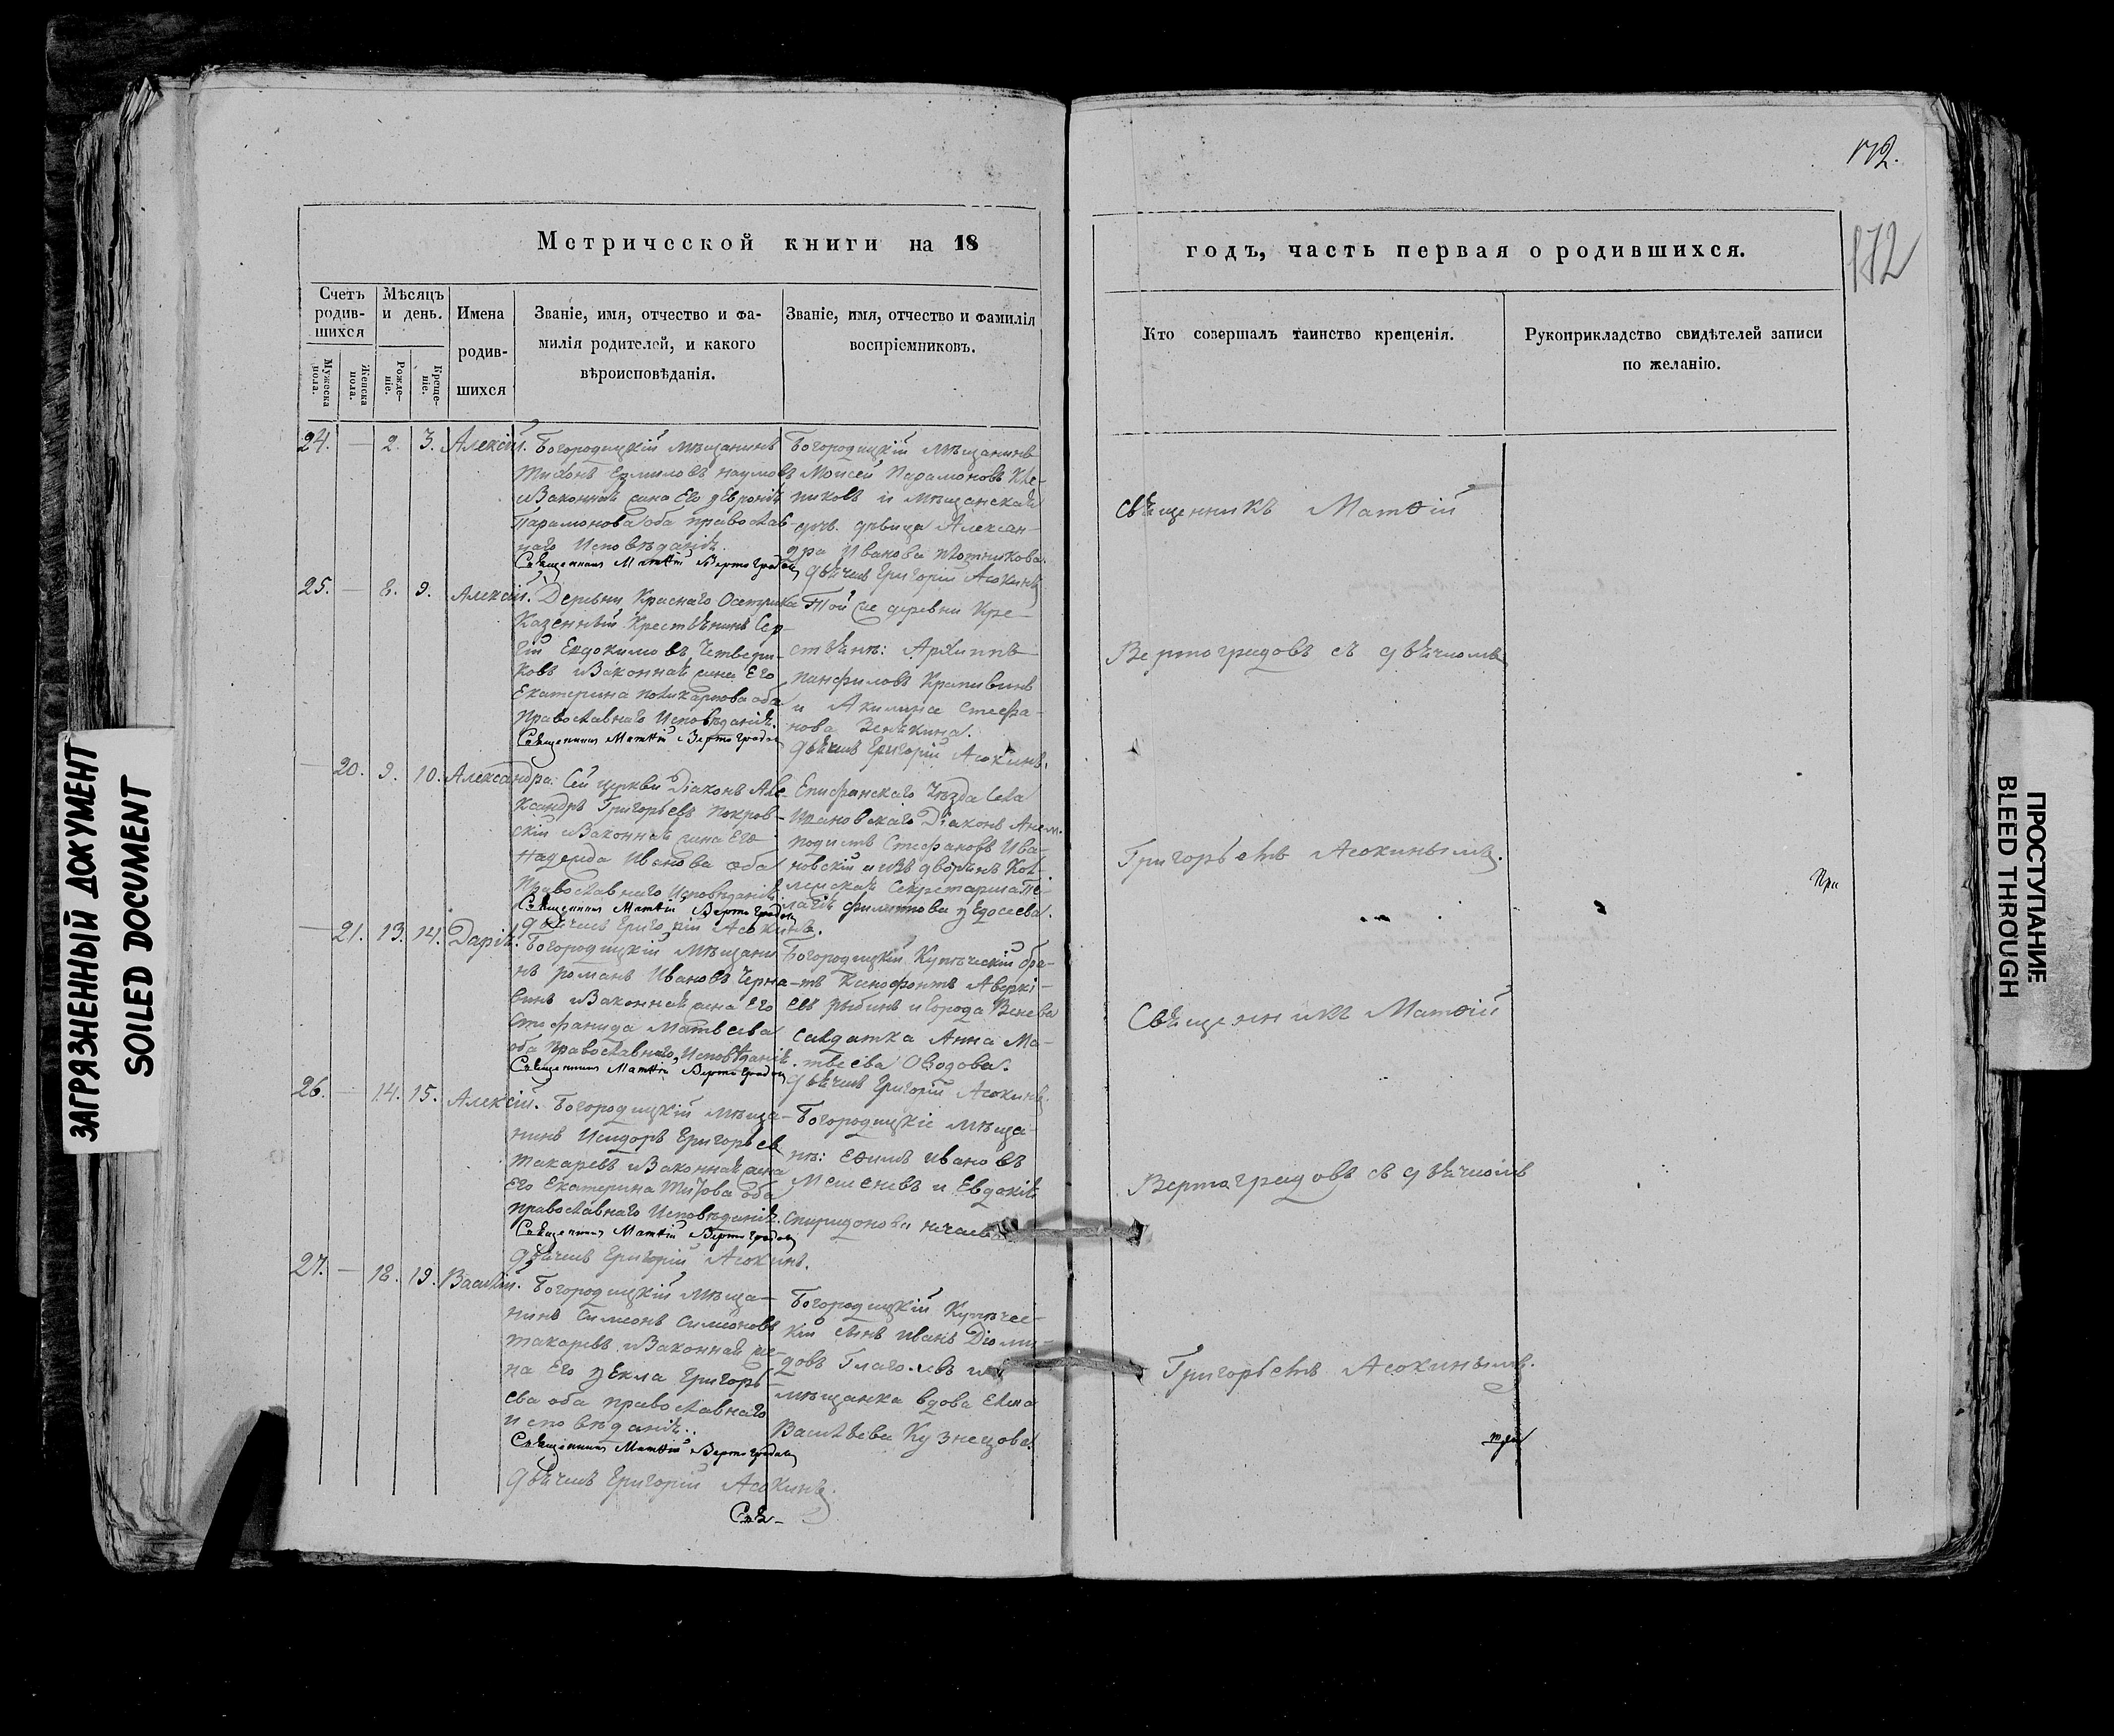 172.
172
Метрической книги на 18
годъ, часть первая о родившихся.
Счетъ родив-шихся
Мужеска пола.
Женска пола.
Мѣсяцъ и день.
Рожде-ніе.
Креще-ніе.
Имена родив-шихся
Званіе, имя, отчество и фа-
милія родителей, и какого
вѣроисповѣданія.
Званіе, имя, отчество и фамилія
воспріемниковъ.
Кто совершалъ таинство крещенія.
Рукоприкладство свидѣтелей записи
по желанію.
24. — 2. 3. Алексій.
Богородицкій мѣщанинъ
Тихонъ Ермиловъ Наумовъ
и законная жена Его
Парамонова оба православ-
наго Исповѣданія.
Священникъ Матѳій Вертоградовъ
Богородицкій мѣщанинъ
Моисей Парамоновъ
и мѣщанская
дѣвица Алексан-
дра Иванова Плотникова.
Дьячекъ Григорій Асокинъ
25. — 8. 9. Алексій.
Деревни Краснаго
Казенный Крестьянинъ Сер-
гій Евдокимовъ Четвери-
ковъ и законная жена Его
Екатерина Поликарпова оба
Православнаго Исповѣданія.
Священникъ Матѳій Вертоградовъ
Той же деревни Кре-
стьяне: Архиппъ
Панфиловъ Крапивинъ
и Акилина Стефа-
нова Зенькина.
Дьячекъ Григорій Асокинъ.
— 20. 9. 10. Александра.
Сей церкви Діаконъ Але-
ксандръ Григорьевъ Покров-
скій и законная жена Его
Надежда Иванова оба
Православнаго Исповѣданія.
Священникъ Матѳій Вертоградовъ
Дьячекъ Григорій Асокинъ.
Епифанскаго Уѣзда Села
Ивановскаго Діаконъ
Стефановъ Ива-
новскій и изъ дворянъ Кол-
лежская Секретарша Пе-
лагія Филиппова Ѳедосеева.
— 21. 13. 14. Дарія.
Богородицкій мѣщани-
нъ Романъ Ивановъ
и законная жена Его
Стефанида Матвеева
оба Православнаго Исповѣданія.
Священникъ Матѳій Вертоградовъ
Богородицкій Купеческій бра-
тъ Ксенофонтъ Аверкі-
евъ Рыбинъ и города Венева
Солдатка Анна Ма-
твеева Оводова.
Дьячекъ Григорій Асокинъ.
26. — 14. 15. Алексій.
Богородицкій мѣща-
нинъ Исидоръ Григорьев
Токаревъ и законная жена
Его Екатерина Титова оба
Православнаго Исповѣданія.
Священникъ Матѳій Вертоградовъ
Дьячекъ Григорій Асокинъ.
Богородицкіе мѣща-
не: Ефимъ Ивановъ
и Евдокія
Спиридонова
27. — 18. 19. Василій.
Богородицкій мѣща-
нинъ Симеонъ Симеоновъ
Токаревъ и законная же-
на Его Ѳекла Григорь-
ева оба православнаго
исповѣданія.
Священникъ Матѳій Вертоградовъ
Дьячекъ Григорій Асокинъ.
Богородицкій Купечес-
кій сынъ Иванъ Діоми-
довъ Глаголевъ и
мѣщанка вдова Елена
Васильева Кузнецова.
Свя-
Священникъ Матѳій
Вертоградовъ съ дьячкомъ
Григорьемъ Асокинымъ.
При
Священникъ Матѳій
Вертоградовъ съ дьячкомъ
Григорьемъ Асокинымъ.
ЗАГРЯЗНЕННЫЙ ДОКУМЕНТ
SOILED DOCUMENT
ПРОСТУПАНИЕ
BLEED THROUGH